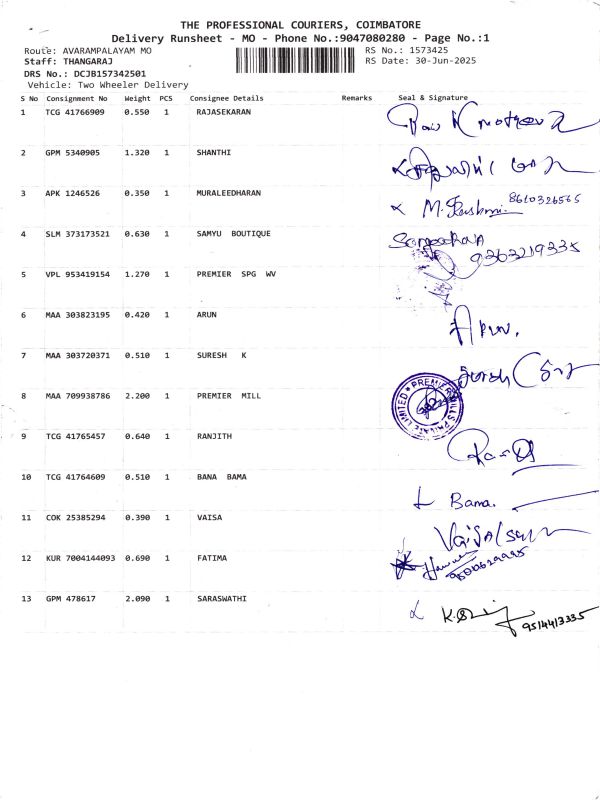 THE PROFESSIONAL COURIERS, COIMBATORE
Delivery Runsheet - MO - Phone No.:9047080280 - Page No.:1
Route: AVARAMPALAYAM MO RS No.: 1573425
Staff: THANGARAJ RS Date: 30-Jun-2025
DRS No.: DCJB157342501
Vehicle: Two Wheeler Delivery
S No Consignment No Weight PCS Consignee Details Remarks Seal & Signature
1 TCG 41766909 0.550 1 RAJASEKARAN
2 GPM 5340905 1.320 1 SHANTHI
3 APK 1246526 0.350 1 MURALEEDHARAN 8610326565
4 SLM 373173521 0.630 1 SAMYU BOUTIQUE 9363219335
5 VPL 953419154 1.270 1 PREMIER SPG WV
6 MAA 303823195 0.420 1 ARUN Arun.
7 MAA 303720371 0.510 1 SURESH K
8 MAA 709938786 2.200 1 PREMIER MILL PREMIER MILLS PRIVATE LIMITED
9 TCG 41765457 0.640 1 RANJITH
10 TCG 41764609 0.510 1 BANA BAMA Bama.
11 COK 25385294 0.390 1 VAISA
12 KUR 7004144093 0.690 1 FATIMA
13 GPM 478617 2.090 1 SARASWATHI 9514413335